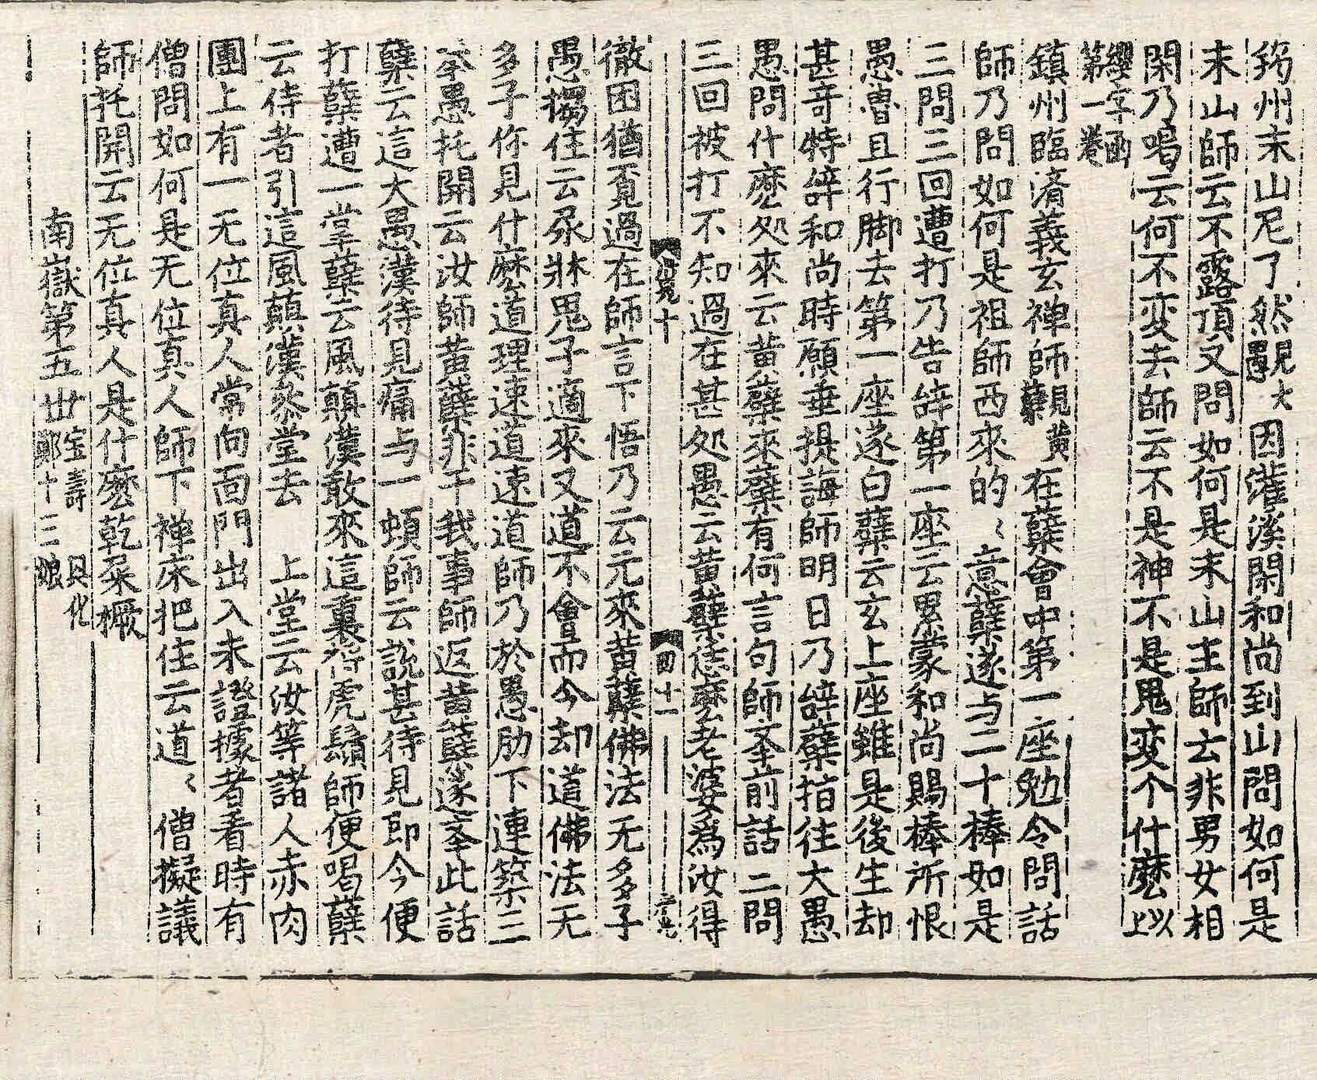 筠州末山尼了然見大愚因灌溪閑和尚到山問如何是
末山師云不露頂又問如何是末山主師云非男女相
閑乃喝云何不変去師云不是神不是鬼変个什麽以上
纓字函第一卷
鎮州臨濟義玄禅師見黃蘗在蘗會中第一座勉令問話
師乃問如何是祖師西來的〻意蘗遂与二十棒如是
三問三回遭打乃告辞第一座云累蒙和尚賜棒所恨
愚魯且行脚去第一座遂白蘗云玄上座雖是後生却
甚竒特辞和尚時願垂提誨師明日乃辞蘗指往大愚
愚問什麽処來云黄蘗來蘗有何言句師挙前話二問
三回被打不知過在甚処愚云黄蘗恁麽老婆爲汝得
十 四十一
徹困猶覔過在師言下悟乃云元來黄蘗佛法无多子
愚搊住云尿牀鬼子適來又道不會而今却道佛法无
多子你見什麽道理速道速道師乃於愚肋下連築三
拳愚托開云汝師黄蘗非干我事師返黄蘗遂挙此話
蘗云這大愚漢待見痛与一頓師云說甚待見即今便
打蘗遭一掌蘗云風顛漢敢來這裏捋虎鬚師便喝蘗
云侍者引這風顛漢叅堂去 上堂云汝等諸人赤肉
團上有一无位真人常向面門出入未證據者看時有
僧問如何是无位真人師下禅床把住云道〻僧擬議
師托開云无位真人是什麽乾屎橛
南嶽第五丗宝壽 鄭十三娘 興化